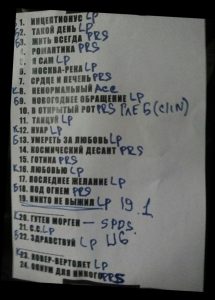 Б 1. ИНЦЕПТИОНУС LP
Б 2. ТАКОЙ ДЕНЬ LP
Б 3. ЖИТЬ ВСЕГДА PRS
4. РОМАНТИКА PRS
5. Я САМ LP
6. МОСКВА-РЕКА LP
7. СРДЦЕ И ПЕЧЕНЬ PRS
К 8. НЕНОРМАЛЬНЫЙ ACC
Б 9. НОВОГОДНЕЕ ОБРАЩЕНИЕ LP
10. В ОТКРЫТЫЙ РОТ PRS
11. ТАНЦУЙ LP
К 12. НУАР LP
Б 13. УМЕРЕТЬ ЗА ЛЮБОВЬ LP
14. КОСМИЧЕСКИЙ ДЕСАНТ PRS
15. ГОТИКА PRS
К 16. ЛЮБОВЬЮ LP
17. ПОСЛЕДНЕЕ ЖЕЛАНИЕ LP
Б 18. ПОД ОГНЕМ PRS
19. НИКТО НЕ ВЫЖИЛ LP 19.1
К 20. ГУТЕН МОРГЕН — SPDS
21. С.С. LP
Б 22. ЗДРАВСТВУЙ LP
К 23. ЛОВЕР-ВЕРТОЛЕТ LP
24. ОПИУМ ДЛЯ НИКОГО PRS